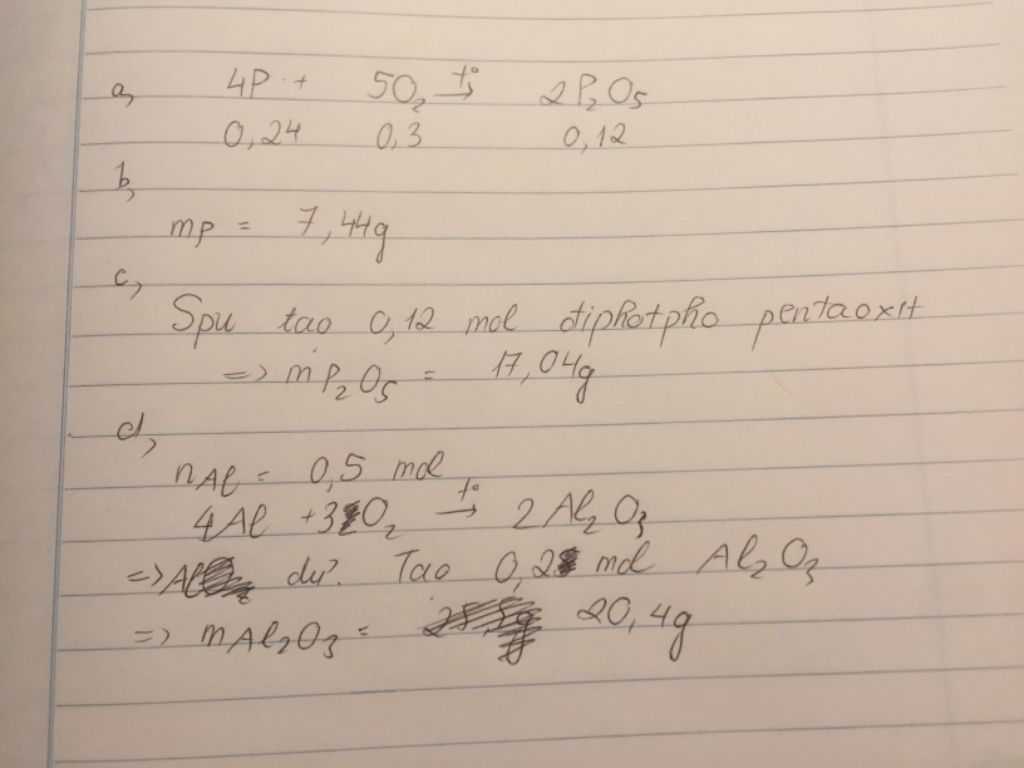 a, 4P + 5O₂ →(t°) 2P₂O₅
0,24 0,3 0,12
b,
mP = 7,44g
c,
Spu tạo 0,12 mol điphotpho pentaoxit
=> mP₂O₅ = 17,04g
d,
nAl = 0,5 mol
4Al + 3O₂ →(t°) 2Al₂O₃
=> Al dư. Tạo 0,2 mol Al₂O₃
=> mAl₂O₃ = 20,4g